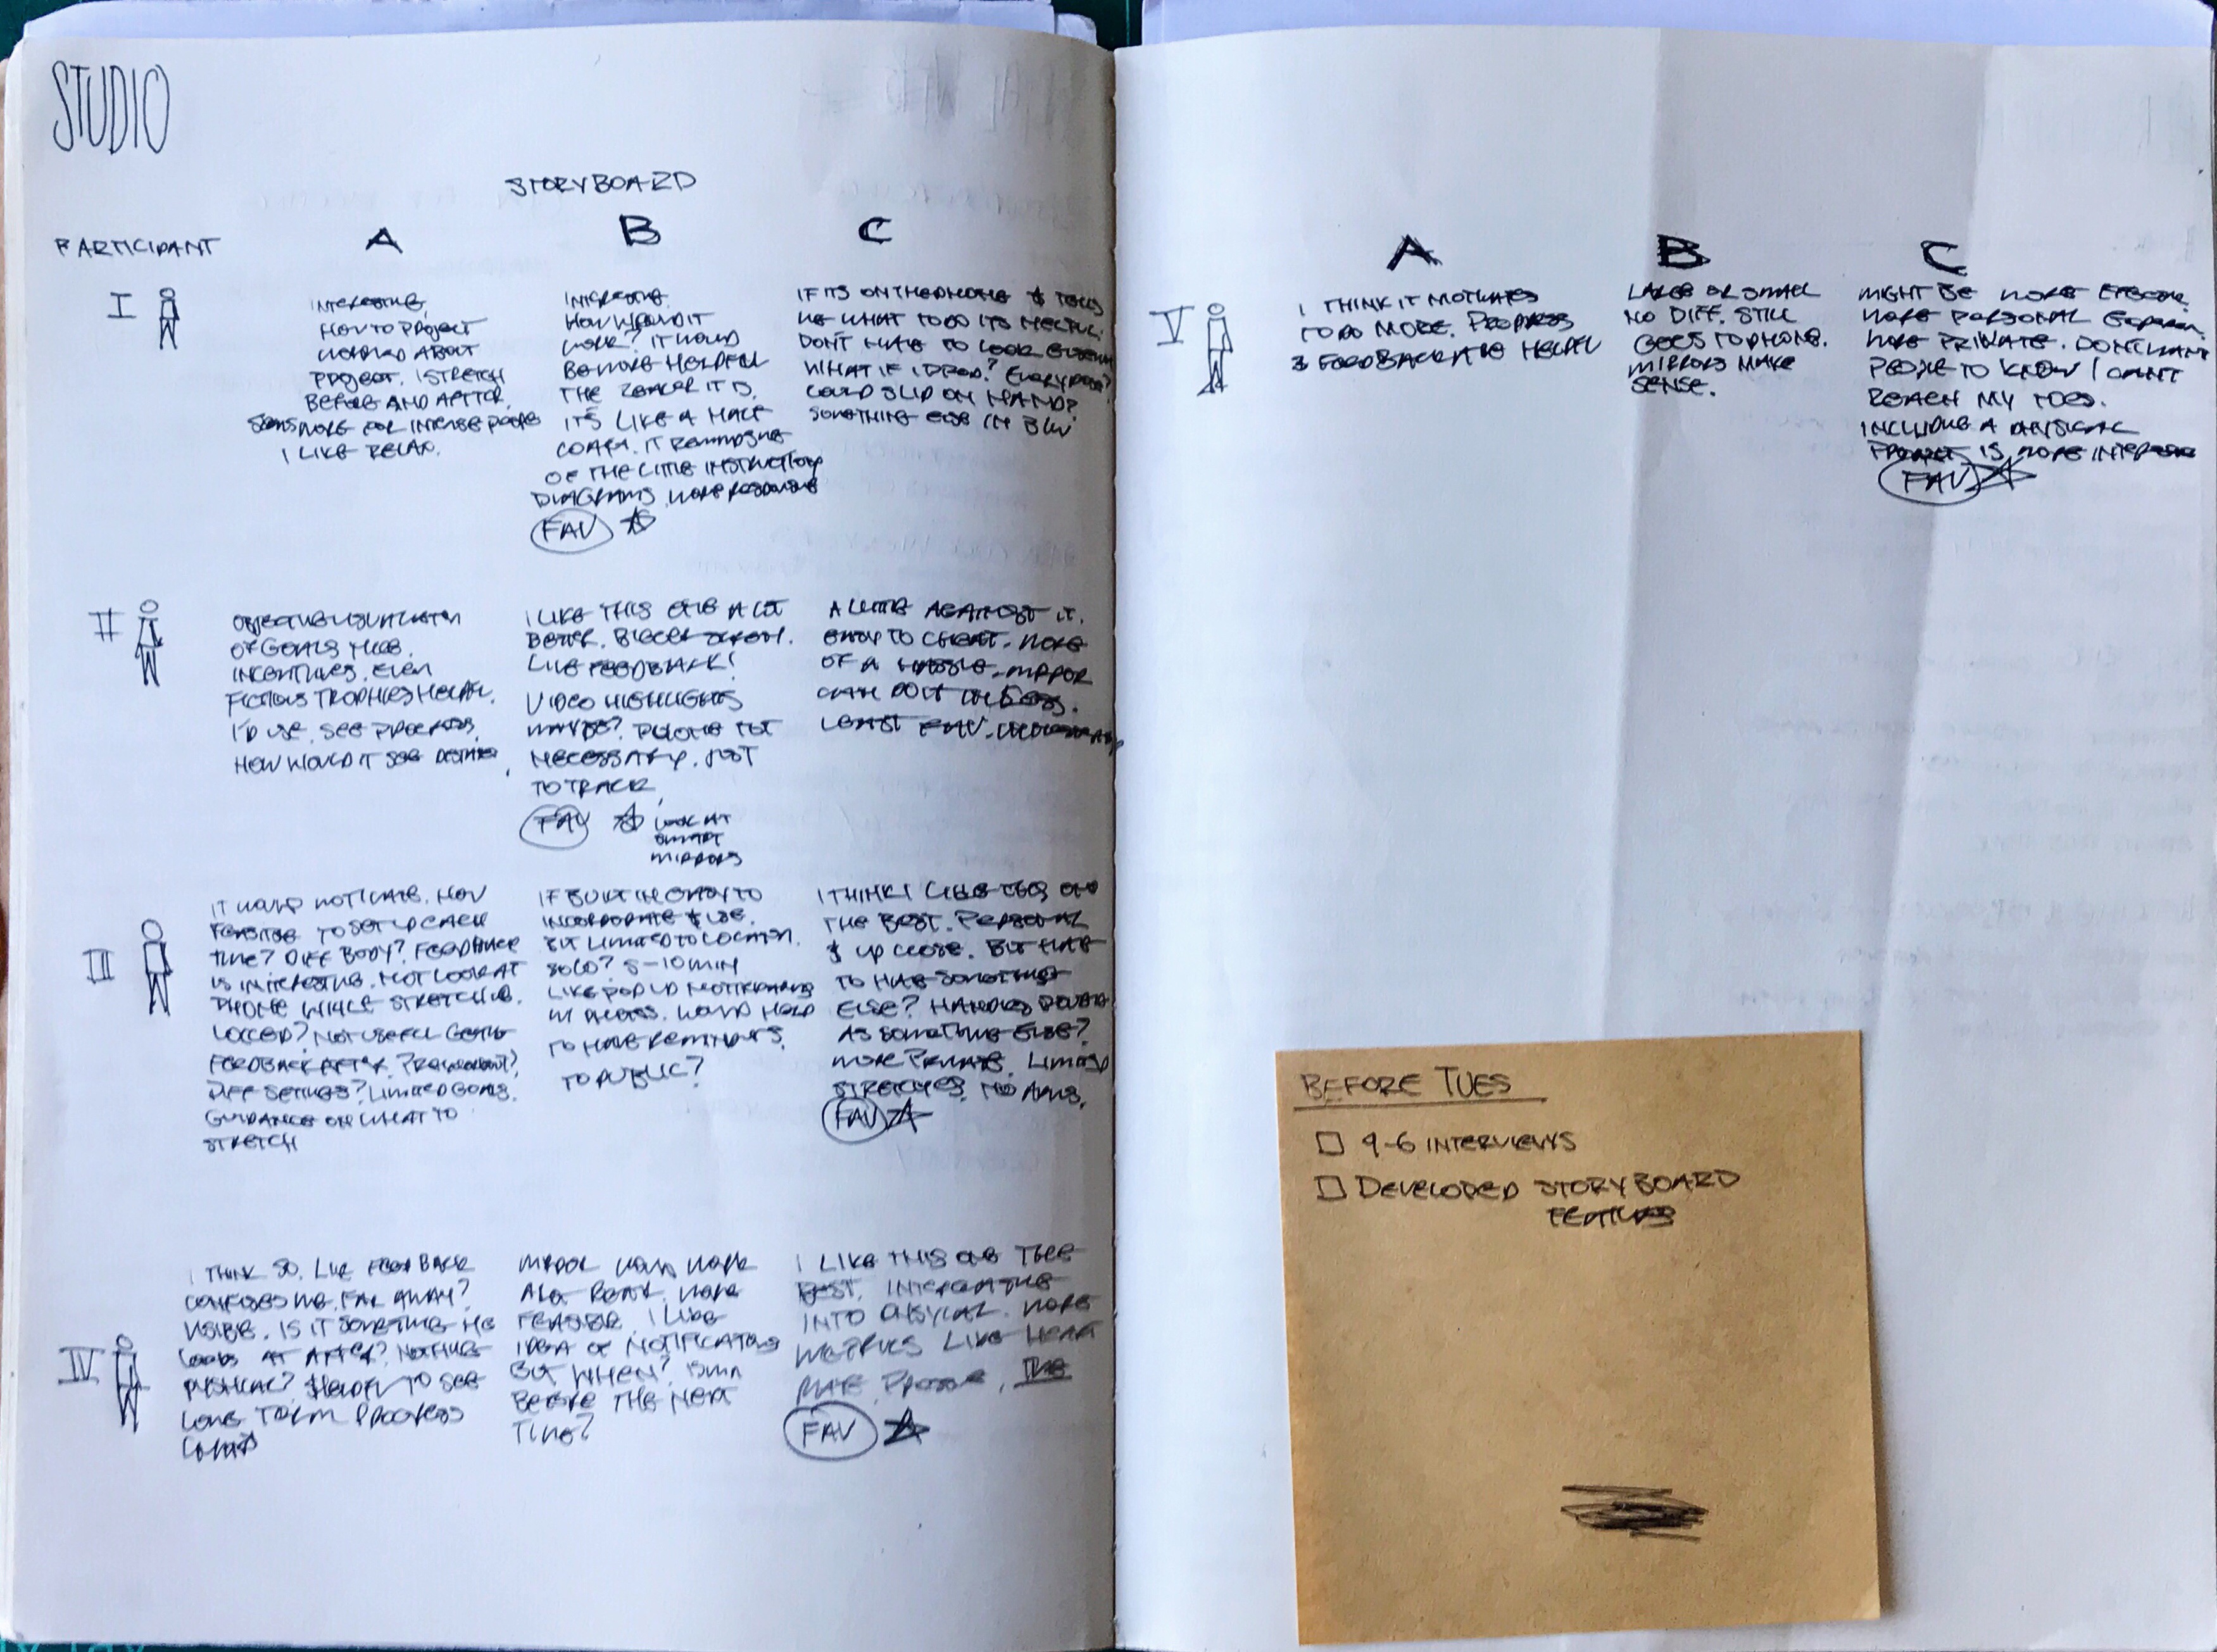 STUDIO
STORYBOARD
PARTICIPANT A B C
I
INTERESTING,
HOW TO PROJECT
WORRIED ABOUT
PROJECT. I STRETCH
BEFORE AND AFTER.
SEEMS MORE FOR INTENSE PEOPLE
I LIKE RELAX.
INTERESTING.
HOW WOULD IT
WORK? IT WOULD
BE MORE HELPFUL
THE LARGER IT IS.
IT'S LIKE A HALF
COACH. IT REMINDS ME
OF THE LITTLE INSTRUCTION
DIAGRAMS. MORE RESPONSIVE
FAV
IF ITS ON THE PHONE & TELLS
ME WHAT TO DO ITS HELPFUL.
DON'T HAVE TO LOOK
WHAT IF I DROP? EVERY DAY?
COULD SLIP ON HAND?
SOMETHING ELSE IN
II
OBJECTIVE VISUALIZATION
OF GOALS NICE.
INCENTIVES, EVEN
FICTIOUS TROPHIES HELPFUL.
I'D USE. SEE PROGRESS.
HOW WOULD IT SEE
I LIKE THIS ONE A LOT
BETTER. BIGGER SCREEN.
LIVE FEEDBACK!
VIDEO HIGHLIGHTS
MAYBE? PHONE NOT
NECESSARY. JUST
TO TRACK.
FAV
LOOK AT
SMART
MIRRORS
A LITTLE AGAINST IT.
EASY TO CHEAT. MORE
OF A HASSLE. MIRROR
CAN DO IT
LEAST FAV.
III
IT WOULD MOTIVATE. HOW
FEASIBLE TO SETUP EACH
TIME? DIFF BODY? FEEDBACK
IS INTERESTING. NOT LOOK AT
PHONE WHILE STRETCHING.
LOGGED? NOT USEFUL GETTING
FEEDBACK AFTER.
DIFF SETTINGS? LIMITED GOALS.
GUIDANCE ON WHAT TO
STRETCH
IF BUILT IN EASY TO
INCORPORATE & USE.
BUT LIMITED TO LOCATION.
SOLO? 5-10 MIN
LIKE POP UP NOTIFICATIONS
IN ACCESS. WOULD HELP
TO HAVE REMINDERS.
TO PUBLIC?
I THINK I LIKE THIS ONE
THE BEST. PERSONAL
& UP CLOSE. BUT HAVE
TO HAVE SOMETHING
ELSE? HANDLES DOUBLE
AS SOMETHING ELSE?
MORE PRIVATE. LIMITED
STRETCHES. NO ARMS.
FAV
IV
I THINK SO. LIVE FEEDBACK
CONFUSES ME. FAR AWAY?
VISIBLE. IS IT SOMETHING HE
LOOKS AT AFTER? NOTHING
PHYSICAL? HELPFUL TO SEE
LONG TERM PROGRESS
MIRROR WOULD WORK
ALOT BETTER. MORE
FEASIBLE. I LIKE
IDEA OF NOTIFICATIONS
BUT WHEN?
BEFORE THE NEXT
TIME?
I LIKE THIS ONE THE
BEST. INTEGRATING
INTO PHYSICAL. MORE
METRICS LIKE HEART
RATE
FAV
A B C
V
I THINK IT MOTIVATES
TO DO MORE. PROGRESS
& FEEDBACK ARE HELPFUL
LARGE OR SMALL
NO DIFF. STILL
GOES TO PHONE.
MIRRORS MAKE
SENSE.
MIGHT BE MORE EFFECTIVE
MORE PERSONAL
MORE PRIVATE. DON'T WANT
PEOPLE TO KNOW I CAN'T
REACH MY TOES.
INCLUDING A PHYSICAL
PRODUCT IS MORE
FAV
BEFORE TUES
4-6 INTERVIEWS
DEVELOPED STORYBOARD
FEATURES